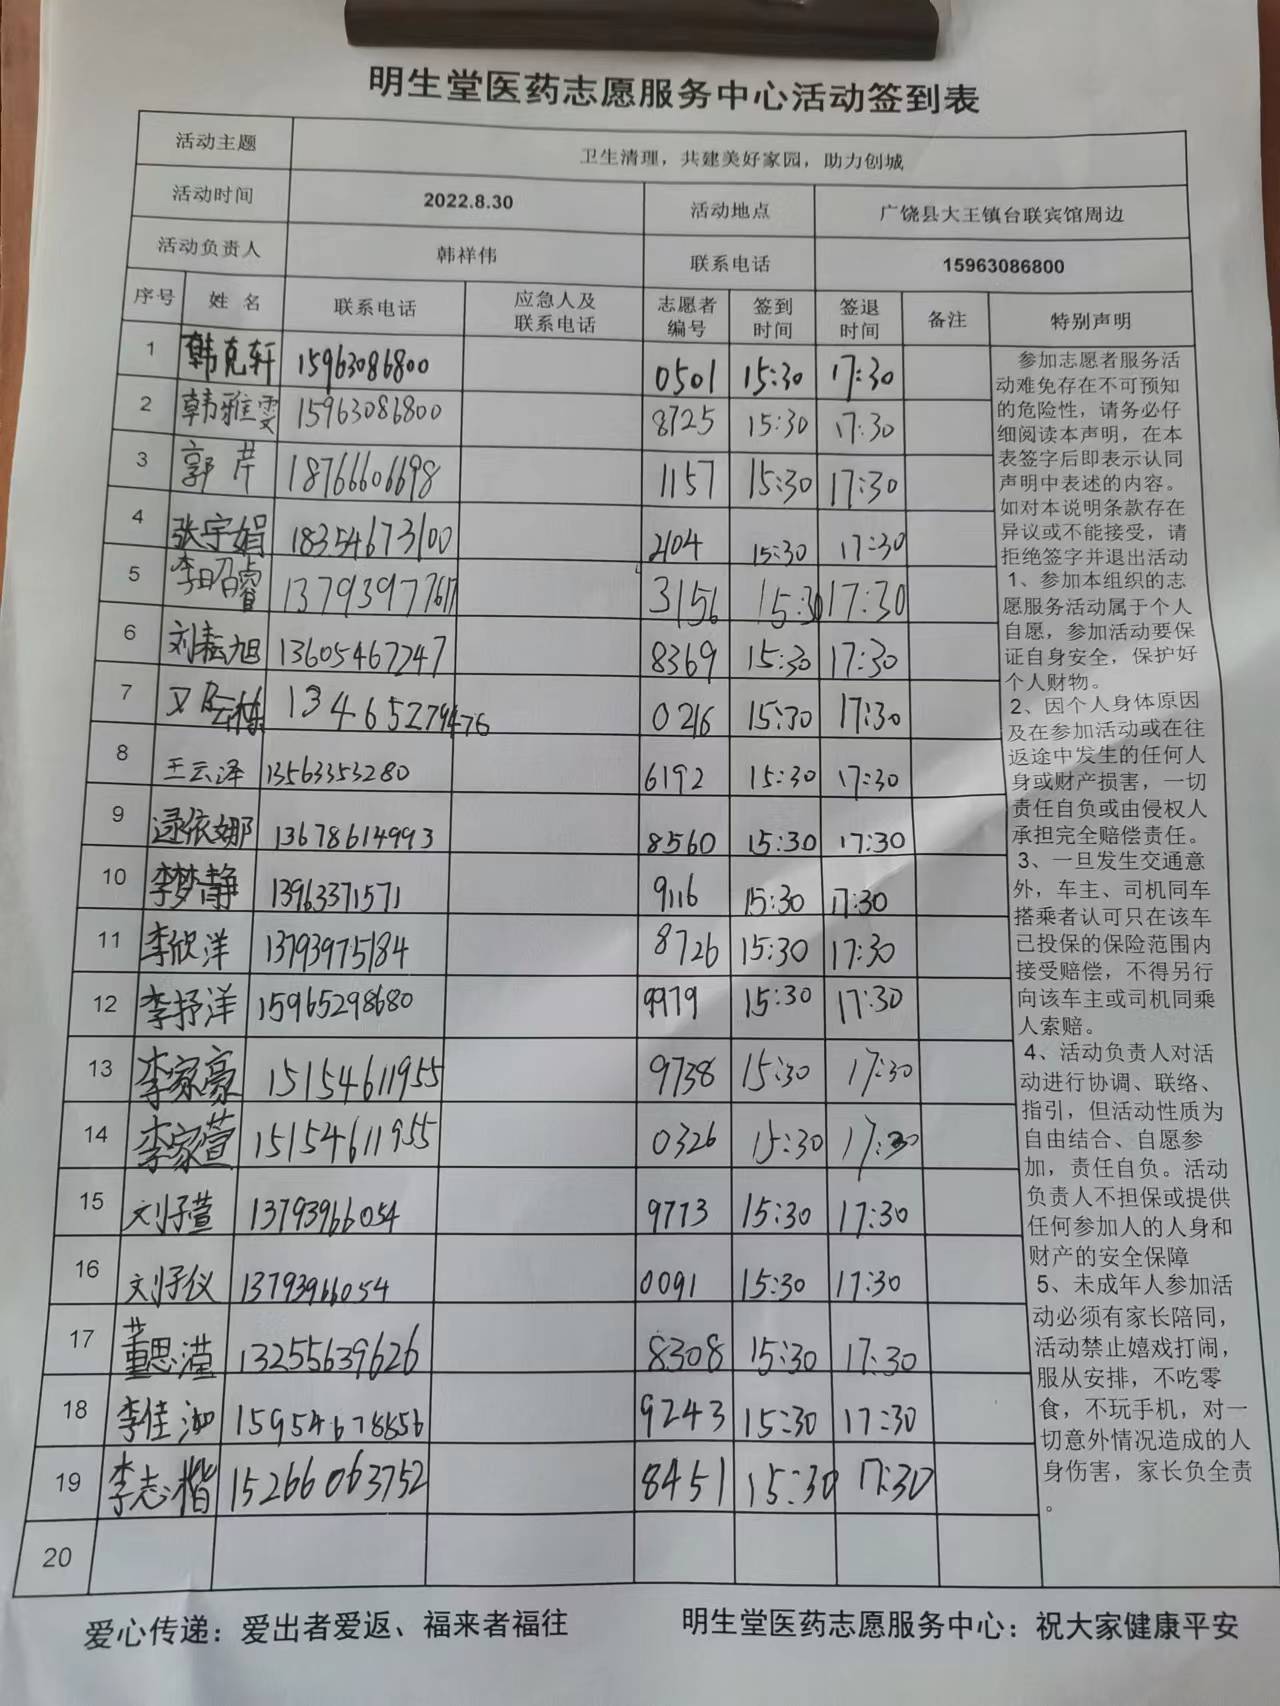 明生堂医药志愿服务中心活动签到表
活动主题 卫生清理，共建美好家园，助力创城
活动时间 2022.8.30 活动地点 广饶县大王镇台联宾馆周边
活动负责人 韩祥伟 联系电话 15963086800
序号 姓名 联系电话 应急人及联系电话 志愿者编号 签到时间 签退时间 备注 特别声明
1 韩克轩 15963086800 0501 15:30 17:30
2 韩雅雯 15963086800 8725 15:30 17:30
3 郭芹 18766606698 1157 15:30 17:30
4 张宇娟 18354673100 2104 15:30 17:30
5 李昭睿 13793977617 3156 15:30 17:30
6 刘耘旭 13605467247 8369 15:30 17:30
7 13465279476 0216 15:30 17:30
8 王云泽 13563353280 6192 15:30 17:30
9 逯依娜 13678614993 8560 15:30 17:30
10 李梦静 13963371571 9116 15:30 17:30
11 李欣洋 13793975184 8726 15:30 17:30
12 李抒洋 15965298680 9979 15:30 17:30
13 李家豪 15154611955 9738 15:30 17:30
14 李家萱 15154611955 0326 15:30 17:30
15 刘子萱 13793966054 9773 15:30 17:30
16 刘子仪 13793966054 0091 15:30 17:30
17 董思滢 13255639626 8308 15:30 17:30
18 李佳 15954678856 9243 15:30 17:30
19 李志楷 15266063752 8451 15:30 17:30
20
参加志愿者服务活
动难免存在不可预知
的危险性，请务必仔
细阅读本声明，在本
表签字后即表示认同
声明中表述的内容。
如对本说明条款存在
异议或不能接受，请
拒绝签字并退出活动
1、参加本组织的志
愿服务活动属于个人
自愿，参加活动要保
证自身安全，保护好
个人财物。
2、因个人身体原因
及在参加活动或在往
返途中发生的任何人
身或财产损害，一切
责任自负或由侵权人
承担完全赔偿责任。
3、一旦发生交通意
外，车主、司机同车
搭乘者认可只在该车
已投保的保险范围内
接受赔偿，不得另行
向该车主或司机同乘
人索赔。
4、活动负责人对活
动进行协调、联络、
指引，但活动性质为
自由结合、自愿参
加，责任自负。活动
负责人不担保或提供
任何参加人的人身和
财产的安全保障
5、未成年人参加活
动必须有家长陪同，
活动禁止嬉戏打闹，
服从安排，不吃零
食，不玩手机，对一
切意外情况造成的人
身伤害，家长负全责
。
爱心传递：爱出者爱返、福来者福往 明生堂医药志愿服务中心：祝大家健康平安